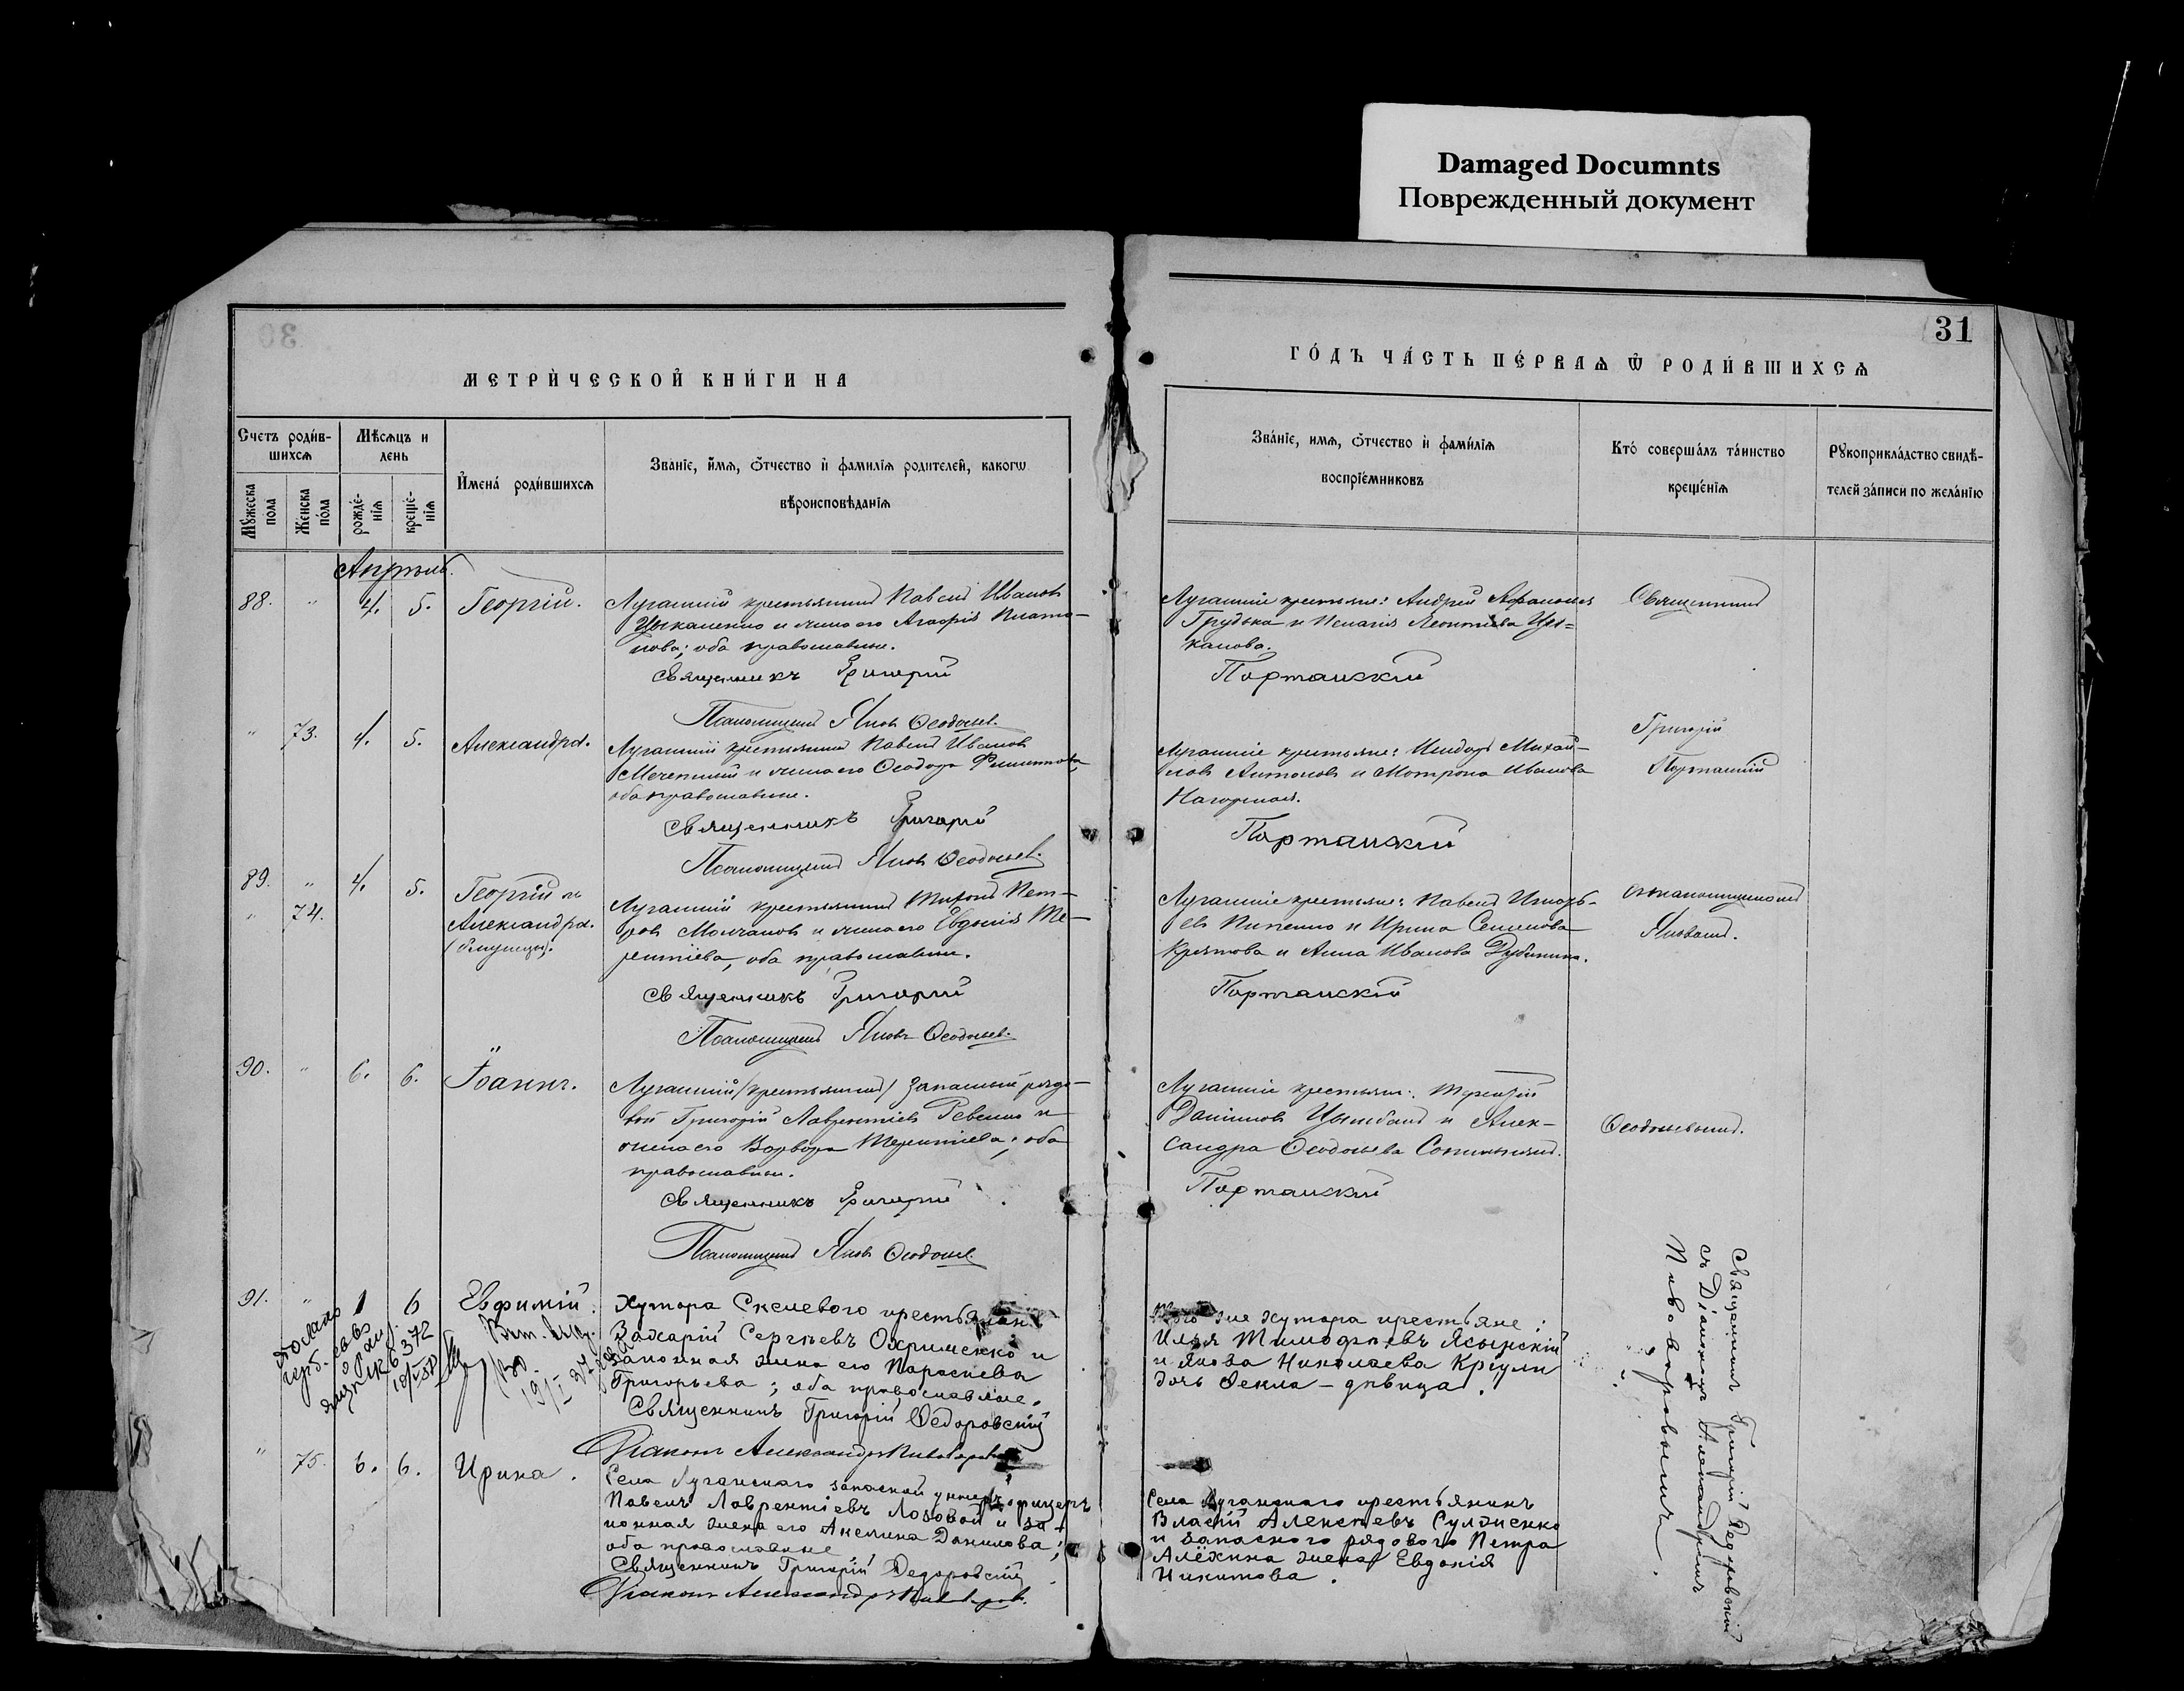 Damaged Documnts
Поврежденный документ
МЕТРИЧЕСКОЙ КНИГИ НА
Счетъ родив-
шихсѧ
Мѣсѧцъ и
день
Мꙋжеска
пола
Женска
пола
рожде-
нїѧ
креще-
нїѧ
Имена родившихсѧ
Званїе, имѧ, ѻтчество и фамилїѧ родителей, какогѡ
вѣроисповѣданїѧ
Апрѣль.
88. " 4. 5. Георгій.
Луганскій крестьянинъ Павелъ Ивановъ
Цыкаленко и жена его Агафія Плато-
нова; оба православные.
Священникъ Григорій
Псаломщикъ Яковъ Ѳеодосьев.
" 73. 4. 5. Александра.
Луганскій крестьянинъ Павелъ Ивановъ
и жена его Ѳеодора
оба православные.
Священникъ Григорій
Псаломщикъ Яковъ Ѳеодосьев.
89. " 4. 5. Георгій и
" 74. Александра.
(близнецы).
Луганскій крестьянинъ Тихонъ Пет-
ровъ Молчановъ и жена его Евдокія Те-
рентіева, оба православные.
Священникъ Григорій
Псаломщикъ Яковъ Ѳеодосьев.
90. " 6. 6. Іоаннъ.
Луганскій /крестьянинъ/ запасный рядо-
вой Григорій Лаврентіевъ Ревенко и
жена его Варвара Терентіева; оба
православные.
Священникъ Григорій
Псаломщикъ Яковъ Ѳеодосьев.
91. " 1 6 Евфимій.
Хутора Скелевого крестьянинъ
Захарій Сергѣевъ Охрименко и
законная жена его Параскева
Григорьева; оба православные.
Священникъ Григорій Ѳедоровскій
Діаконъ Александръ Пивоваровъ
" 75. 6. 6. Ирина.
Села Луганскаго запасной унтеръ офицеръ
Павелъ Лаврентіевъ Лозовой и за-
конная жена его Акелина Данилова;
оба православные
Священникъ Григорій Ѳедоровскій
Діаконъ Александръ Пивоваров.
31
ГОДЪ ЧАСТЬ ПЕРВАѦ Ѡ РОДИВШИХСѦ
Званїе, имѧ, ѻтчество и фамилїѧ
воспрїемниковъ
Кто совершалъ таинство
крещенїѧ
Рꙋкоприкладство свидѣ-
телей записи по желанїю
Луганскіе крестьяне: Андрей Афанасьев
Грудька и Пелагія Леонтіева Цы=
канова.
Портанскій
Священникъ
Луганскіе крестьяне: Исидоръ Михай-
ловъ Антоновъ и Мотрона Иванова
Нагорная.
Портанскій
Григорій
Портанскій
Луганскіе крестьяне: Павелъ Игнать-
евъ и Ирина Семенова
и Анна Иванова Дубинина.
Портанскій
съ псаломщикомъ
Яковомъ.
Луганскіе крестьяне: Терентій
Даніиловъ Цымбалъ и Алек-
сандра Ѳеодосьева
Портанскій
Ѳеодосьевымъ.
Того же хутора крестьяне:
Илья Тимофѣевъ Ясынскій
и Якова Николаева Кріули
дочь Ѳекла - дѣвица.
Села Луганскаго крестьянинъ
Власій Алексѣевъ Сулженко
и запасного рядового Петра
Алёхина жена Евдокія
Никитова.
Священникъ Григорій Ѳедоровскій
съ Діакономъ Александромъ
Пивоваровымъ.